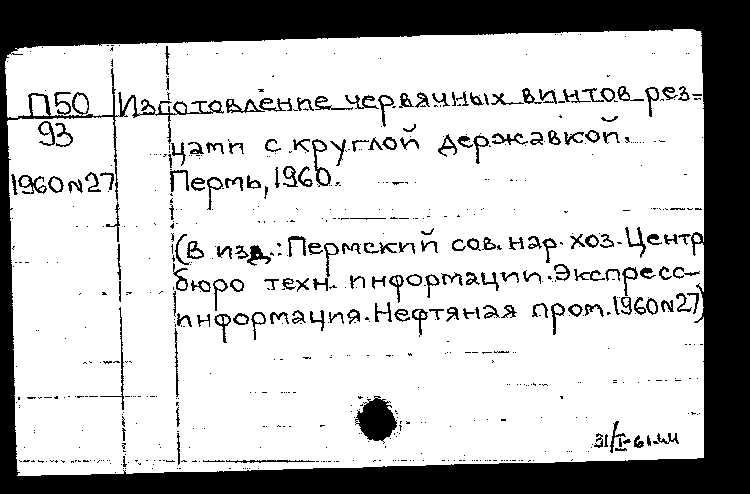 П50 Изготовление червячных винтов рез=
93
цами с круглой державкой.
1960N27 Пермь, 1960.
(В изд.: Пермский сов. нар. хоз. Центр
бюро техн. информации. Экспресс-
информация. Нефтяная пром. 1960N27)
31/I-61